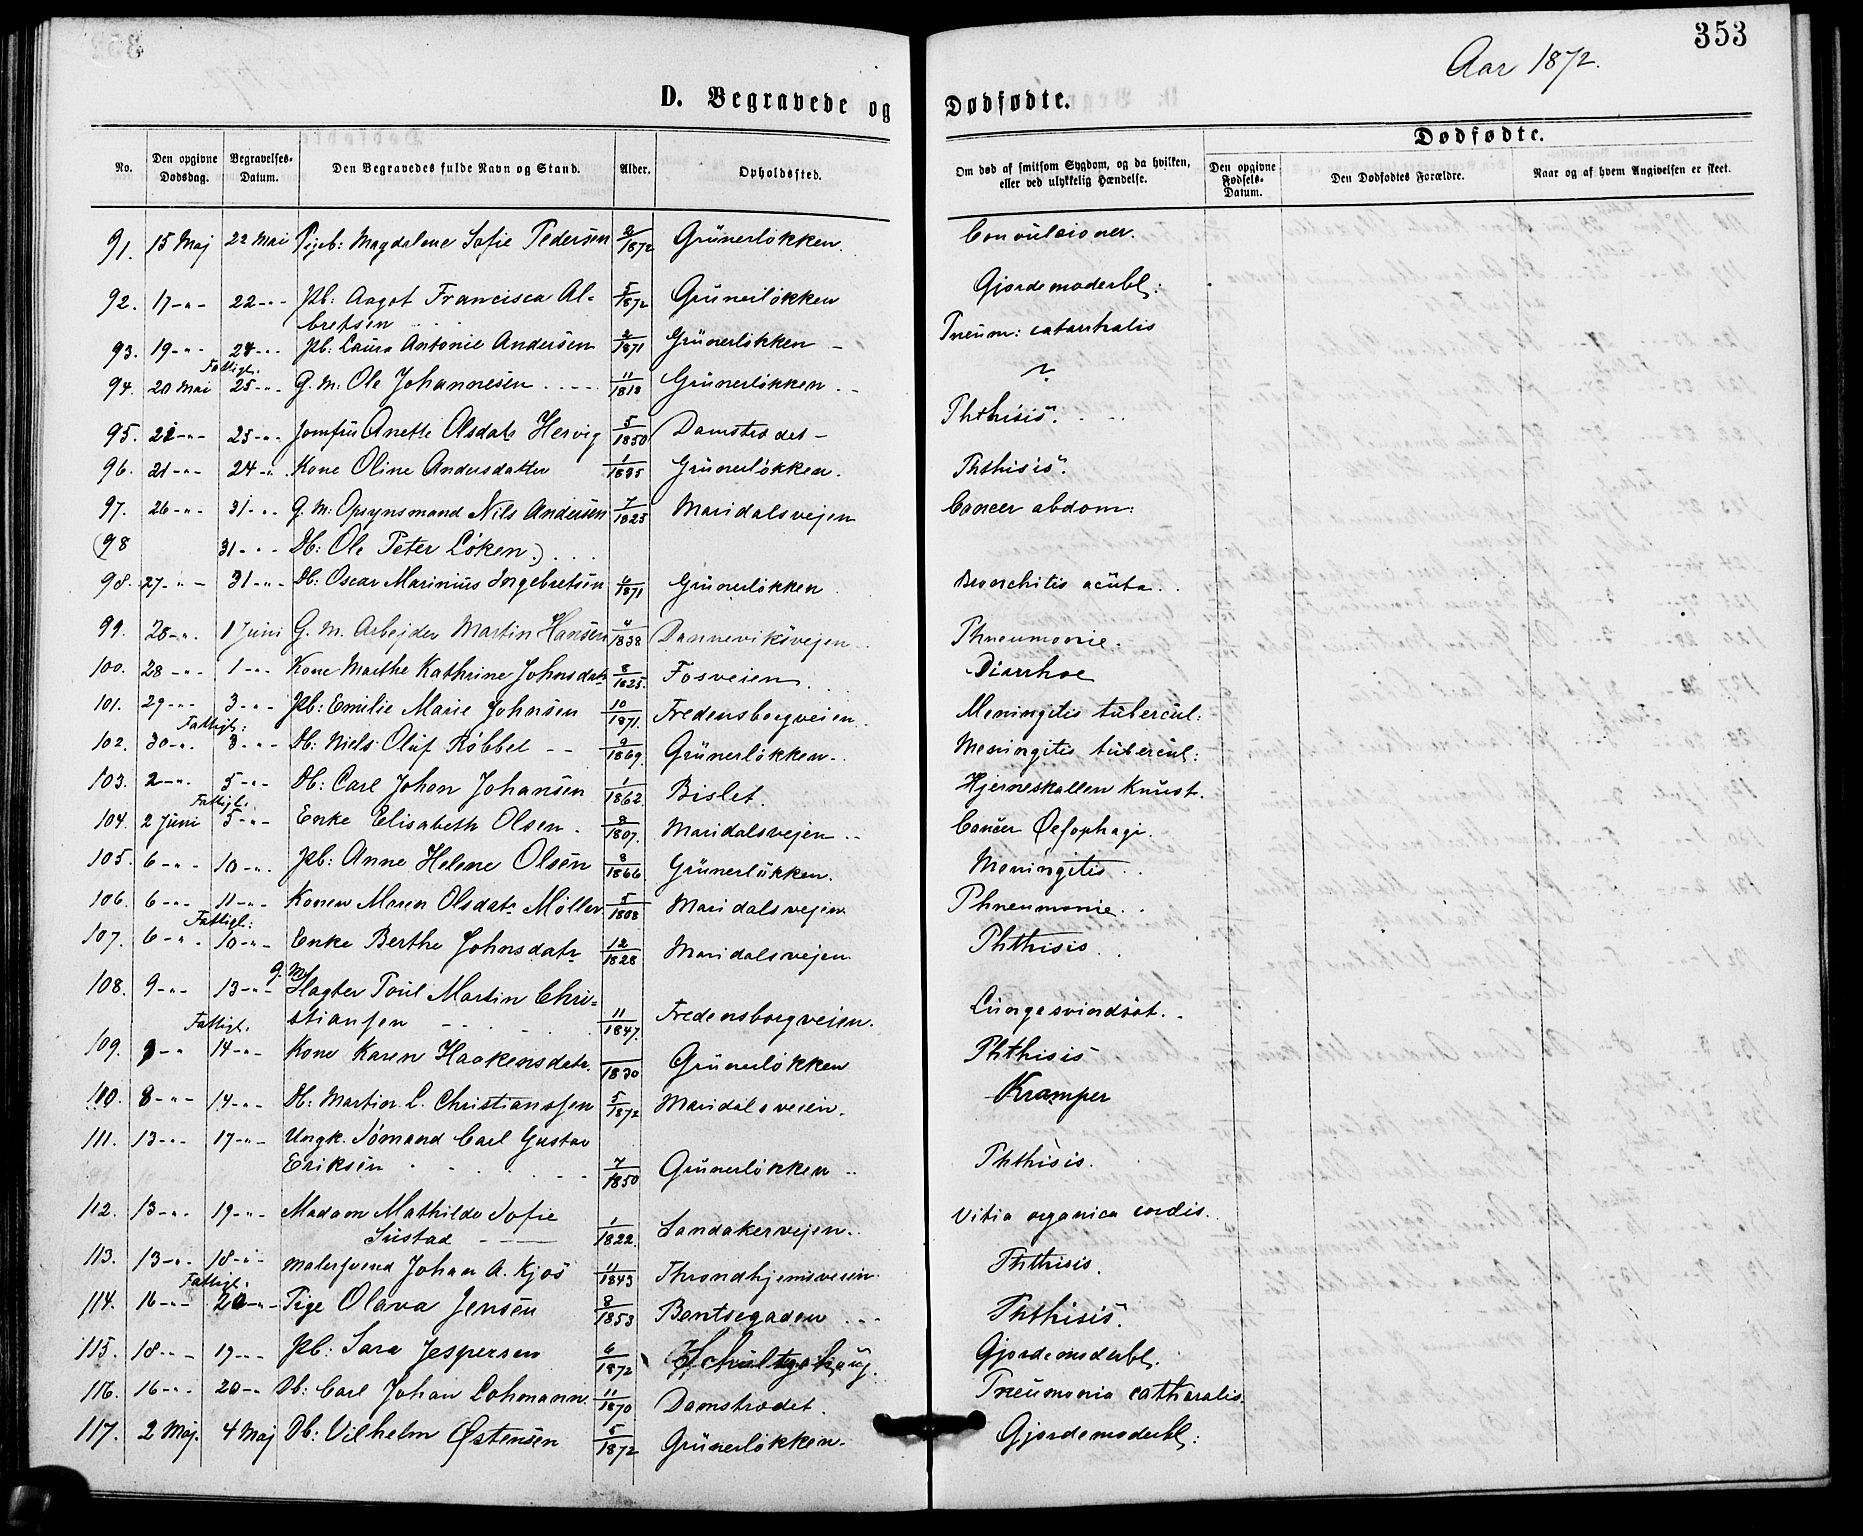 353
Aar 1872.
D. Begravede og Dødfødte.
Dødfødte.
No. Den opgivne Dødsdag. Begravelses-Datum. Den Begravedes fulde Navn og Stand. Alder. Opholdssted. Om død af smitsom Sygdom, og da hvilken, eller ved ulykkelig Hændelse. Den opgivne Fødsels-Datum. Den Dødfødtes Forældre. Naar og af hvem Angivelsen er skeet.
91. 15 Maj 22 Mai Pigeb: Magdalene Sofie Pedersen 2/1872 Grünerløkken. Convulsioner.
92. 17 -"- 22 -"- Pb: Aagot Francisca Al-
bretsen 5/1872 Grünerløkken Gjordemoderbl:
93. 19 -"- 24 -"- Pb: Laura Antonie Andersen 2/1871 Grünerløkken - Pneum: catarrhalis
Fattigl:
94. 20 Mai 25 -"- G. M: Ole Johannesen 11/1818 Grünerløkken. ?
95. 21 -"- 25 -"- Jomfru Anette Olsdatr Hervig 5/1850 Damstrædet - Phthisis.
96. 21 -"- 24 -"- Kone Oline Andersdatter 1/1835 Grünerløkken. Phthisis.
97. 26 -"- 31 -"- G. M: Opsynsmand Nils Andersen 7/1823 Maridalsvejen Cancer abdom:
(98 31 -"- Db: Ole Peter Løken.)
98. 27 -"- 31 -"- Db: Oscar Marinius Ingebretsen 11/1871 Grünerløkken Bronchitis acuta.
99. 28 -"- 1 Juni G. M. Arbejder Martin Hansen 4/1838 Danneviksvejen Phneumonie.
100. 28 -"- 1 -"- Kone Marthe Kathrine Johnsdatr 8/1825. Fosveien Diarrhoe
101. 29 -"- 3 -"- Pb: Emilie Marie Johnsen 10/1871. Fredensborgveien Meningitis tubercul:
Fattigl:
102. 30 -"- 3 -"- Db: Niels Oluf Røbbel 9/1869. Grünerløkken. Meningitis tubercul:
103. 2 -"- 5 -"- Db: Carl Johan Johansen 1/1862. Bislet. Hjerneskallen Knust.
Fattigl:
104. 2 Juni 5 -"- Enke Elisabeth Olsen. 8/1807. Maridalsvejen Cancer Oesophagi.
105. 6 -"- 10 -"- Pb: Anne Helene Olsen 8/1866 Grünerløkken. Meningitis
106. 6 -"- 11 -"- Konen Maren Olsdatr Møller 5/1808 Maridalsvejen Phneumonie.
Fattigl:
107. 6 -"- 10 -"- Enke Berthe Johnsdatr 12/1828 Maridalsvejen Phthisis
108. 9 -"- 13 -"- g. M. Slagter Poul Martin Chri-
stiansen 11/1847. Fredensborgveien. Lungesvindsot.
Fattigl.
109. 9 -"- 14 -"- Kone Karen Haakensdatr. 1830 Grünerløkken Phthisis
110. 8 -"- 14 -"- Db: Martin L. Christianssen 5/1872 Maridalsveien. Kramper
111. 13 -"- 17 -"- Ungk. Sømand Carl Gustav
Eriksen 7/1850 Grünerløkken Phthisis.
112. 13 -"- 19 -"- Madam Mathilde Sofie
Sustad 1/1822. Sandakervejen. Vitia organica cordis.
113. 13 -"- 18 -"- Malersvend Johan A. Kjos 11/1843 Throndhjemsveien Phthisis.
Fattigl.
114. 16 -"- 20 -"- Pige Olava Jensen 8/1853 Bentsegaden Phthisis.
115. 18 -"- 19 -"- Pb: Sara Jespersen 6/1872 Schultzehaug. Gjordemoderbl.
116. 16 -"- 20 -"- Db: Carl Johan Lohmann. 11/1870 Damstrædet. Pneumonia catharalis.
117. 2 Maj. 4 Maj Db: Vilhelm Østensen 5/1872 Grünerløkken. Gjordemoderbl: